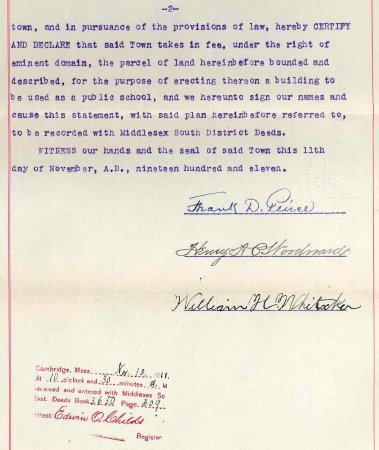 -2-
town, and in pursuance of the provisions of law, hereby CERTIFY
AND DECLARE that said Town takes in fee, under the right of
eminent domain, the parcel of land hereinbefore bounded and
described, for the purpose of erecting thereon a building to
be used as a public school, and we hereunto sign our names and
cause this statement, with said plan hereinbefore referred to,
to be recorded with Middlesex South District Deeds.
WITNESS our hands and the seal of said Town this 11th
day of November, A.D., nineteen hundred and eleven.
Frank D. Peirce
Henry A C Woodward
William H. Whitaker
Cambridge, Mass. Nov. 13, 1911.
At 10 o'clock and 30 minutes, A. M
received and entered with Middlesex So
Dist. Deeds Book 3650 Page 209
Attest: Edwin O. Childs
Register